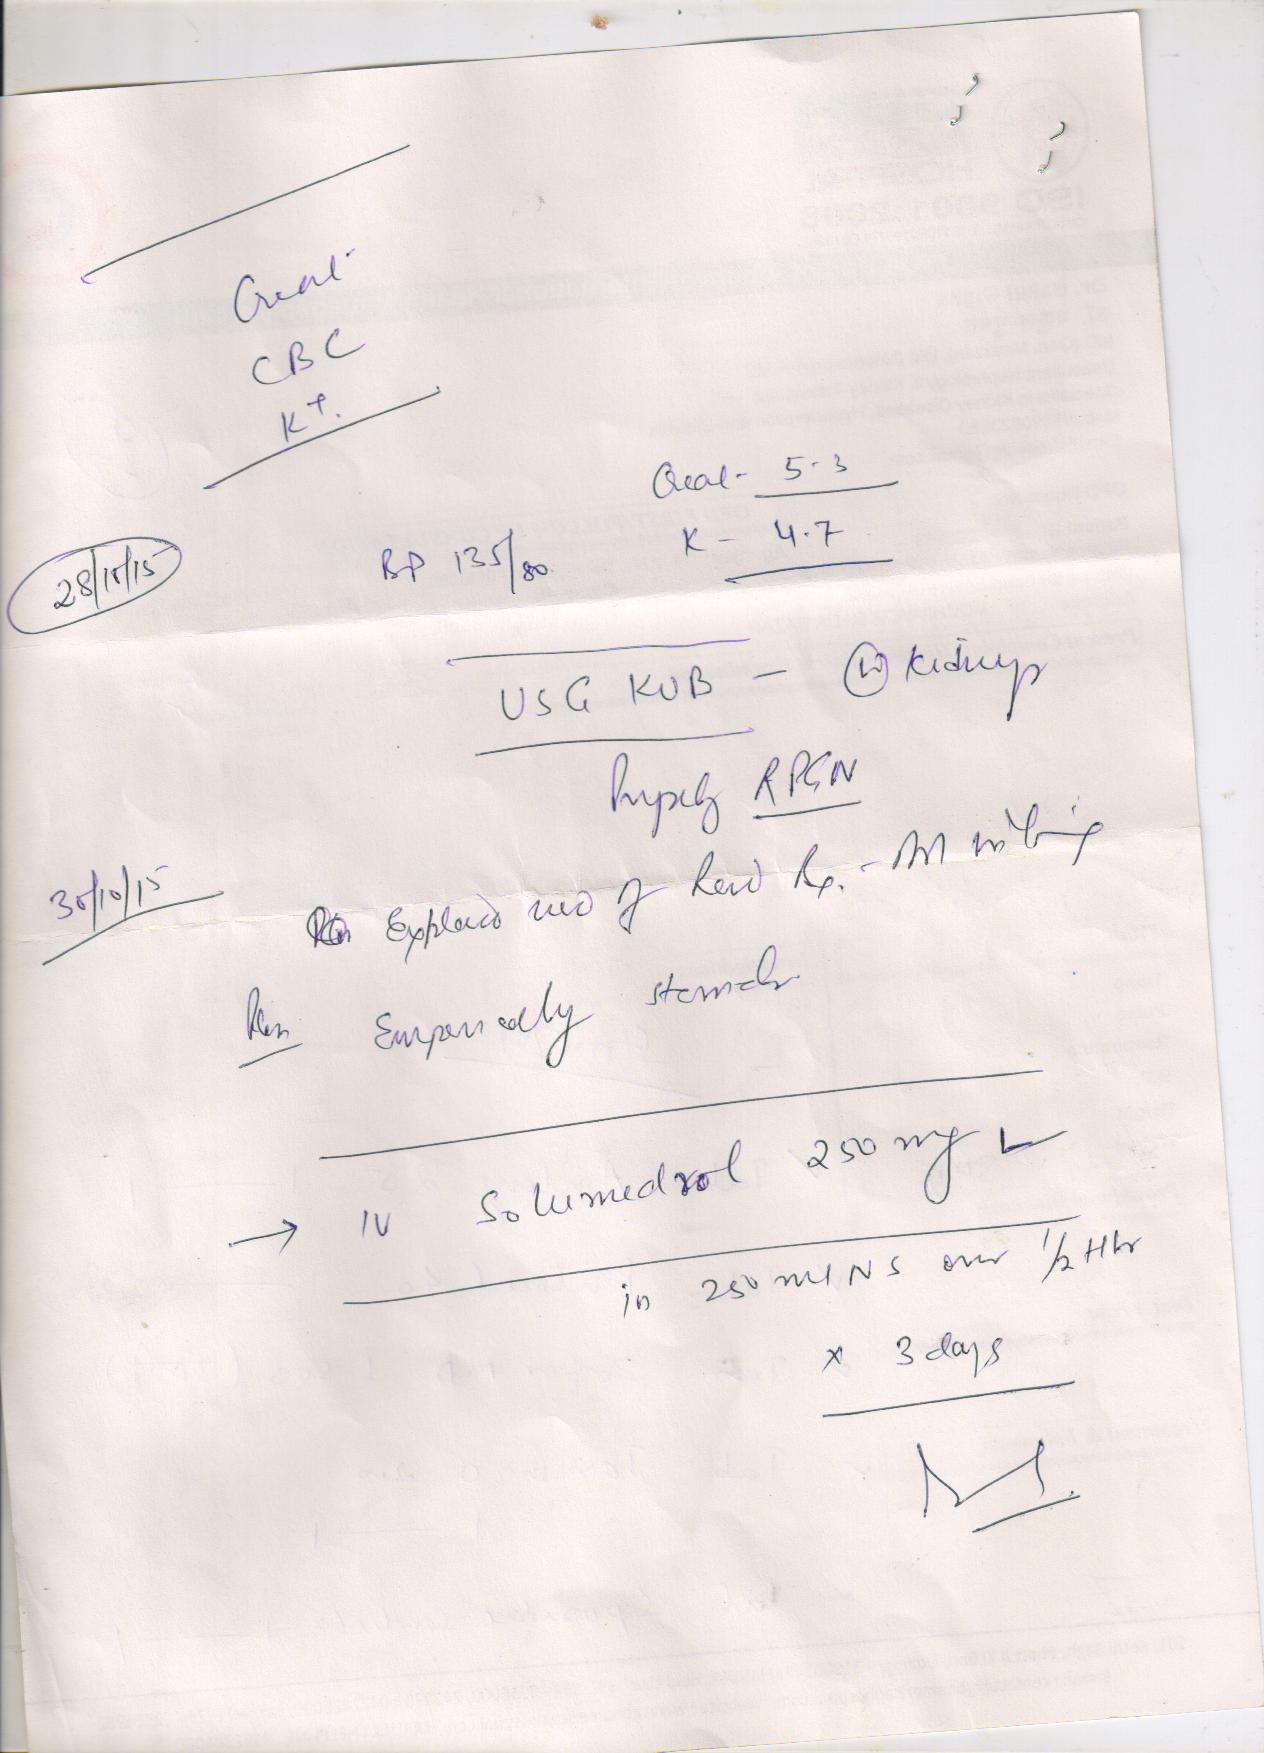 Creat-
CBC
K+.
Creat- 5.3
28/10/15 BP 135/80 K - 4.7
USG KUB - (N) Kidneys
RPGN
30/10/15
Explained need of Renal Bx. - Not willing
Plan Emperically steroids
→ IV Solumedrol 250 mg
in 250 ml NS over 1/2 Hr
x 3 days